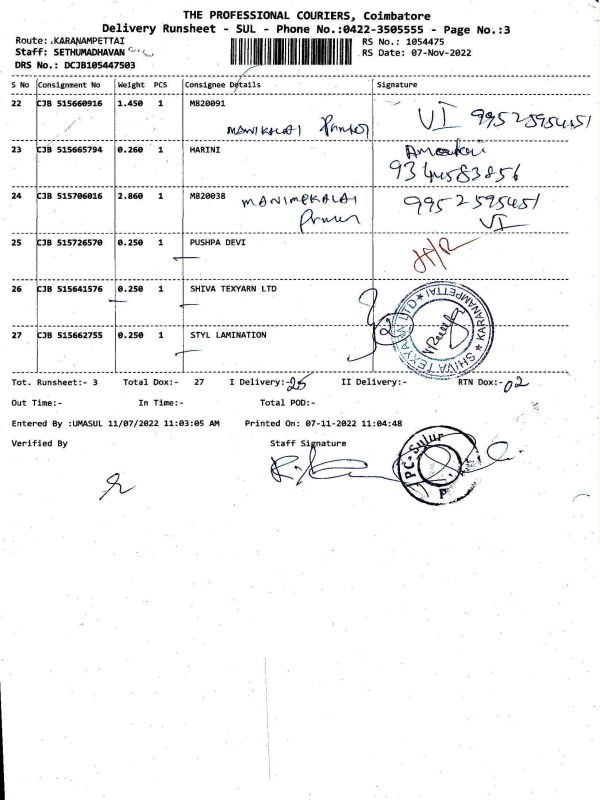 THE PROFESSIONAL COURIERS, Coimbatore
Delivery Runsheet - SUL - Phone No.:0422-3505555 - Page No.:3
Route: KARANAMPETTAI
RS No.: 1054475
Staff: SETHUMADHAVAN
RS Date: 07-Nov-2022
DRS No.: DCJB105447503
S No Consignment No Weight PCS Consignee Details Signature
22 CJB 515660916 1.450 1 M820091
VI
23 CJB 515665794 0.260 1 HARINI
24 CJB 515706016 2.860 1 M820038 MANIMEKALAI 9952595451
VI
25 CJB 515726570 0.250 1 PUSHPA DEVI
26 CJB 515641576 0.250 1 SHIVA TEXYARN LTD
SHIVA TEXYARN LTD ★ KARANAMPETTAI ★
27 CJB 515662755 0.250 1 STYL LAMINATION
Tot. Runsheet:- 3 Total Dox:- 27 I Delivery:- 25 II Delivery:- RTN Dox:- 02
Out Time:- In Time:- Total POD:-
Entered By :UMASUL 11/07/2022 11:03:05 AM Printed On: 07-11-2022 11:04:48
Verified By Staff Signature
PC-Sulur